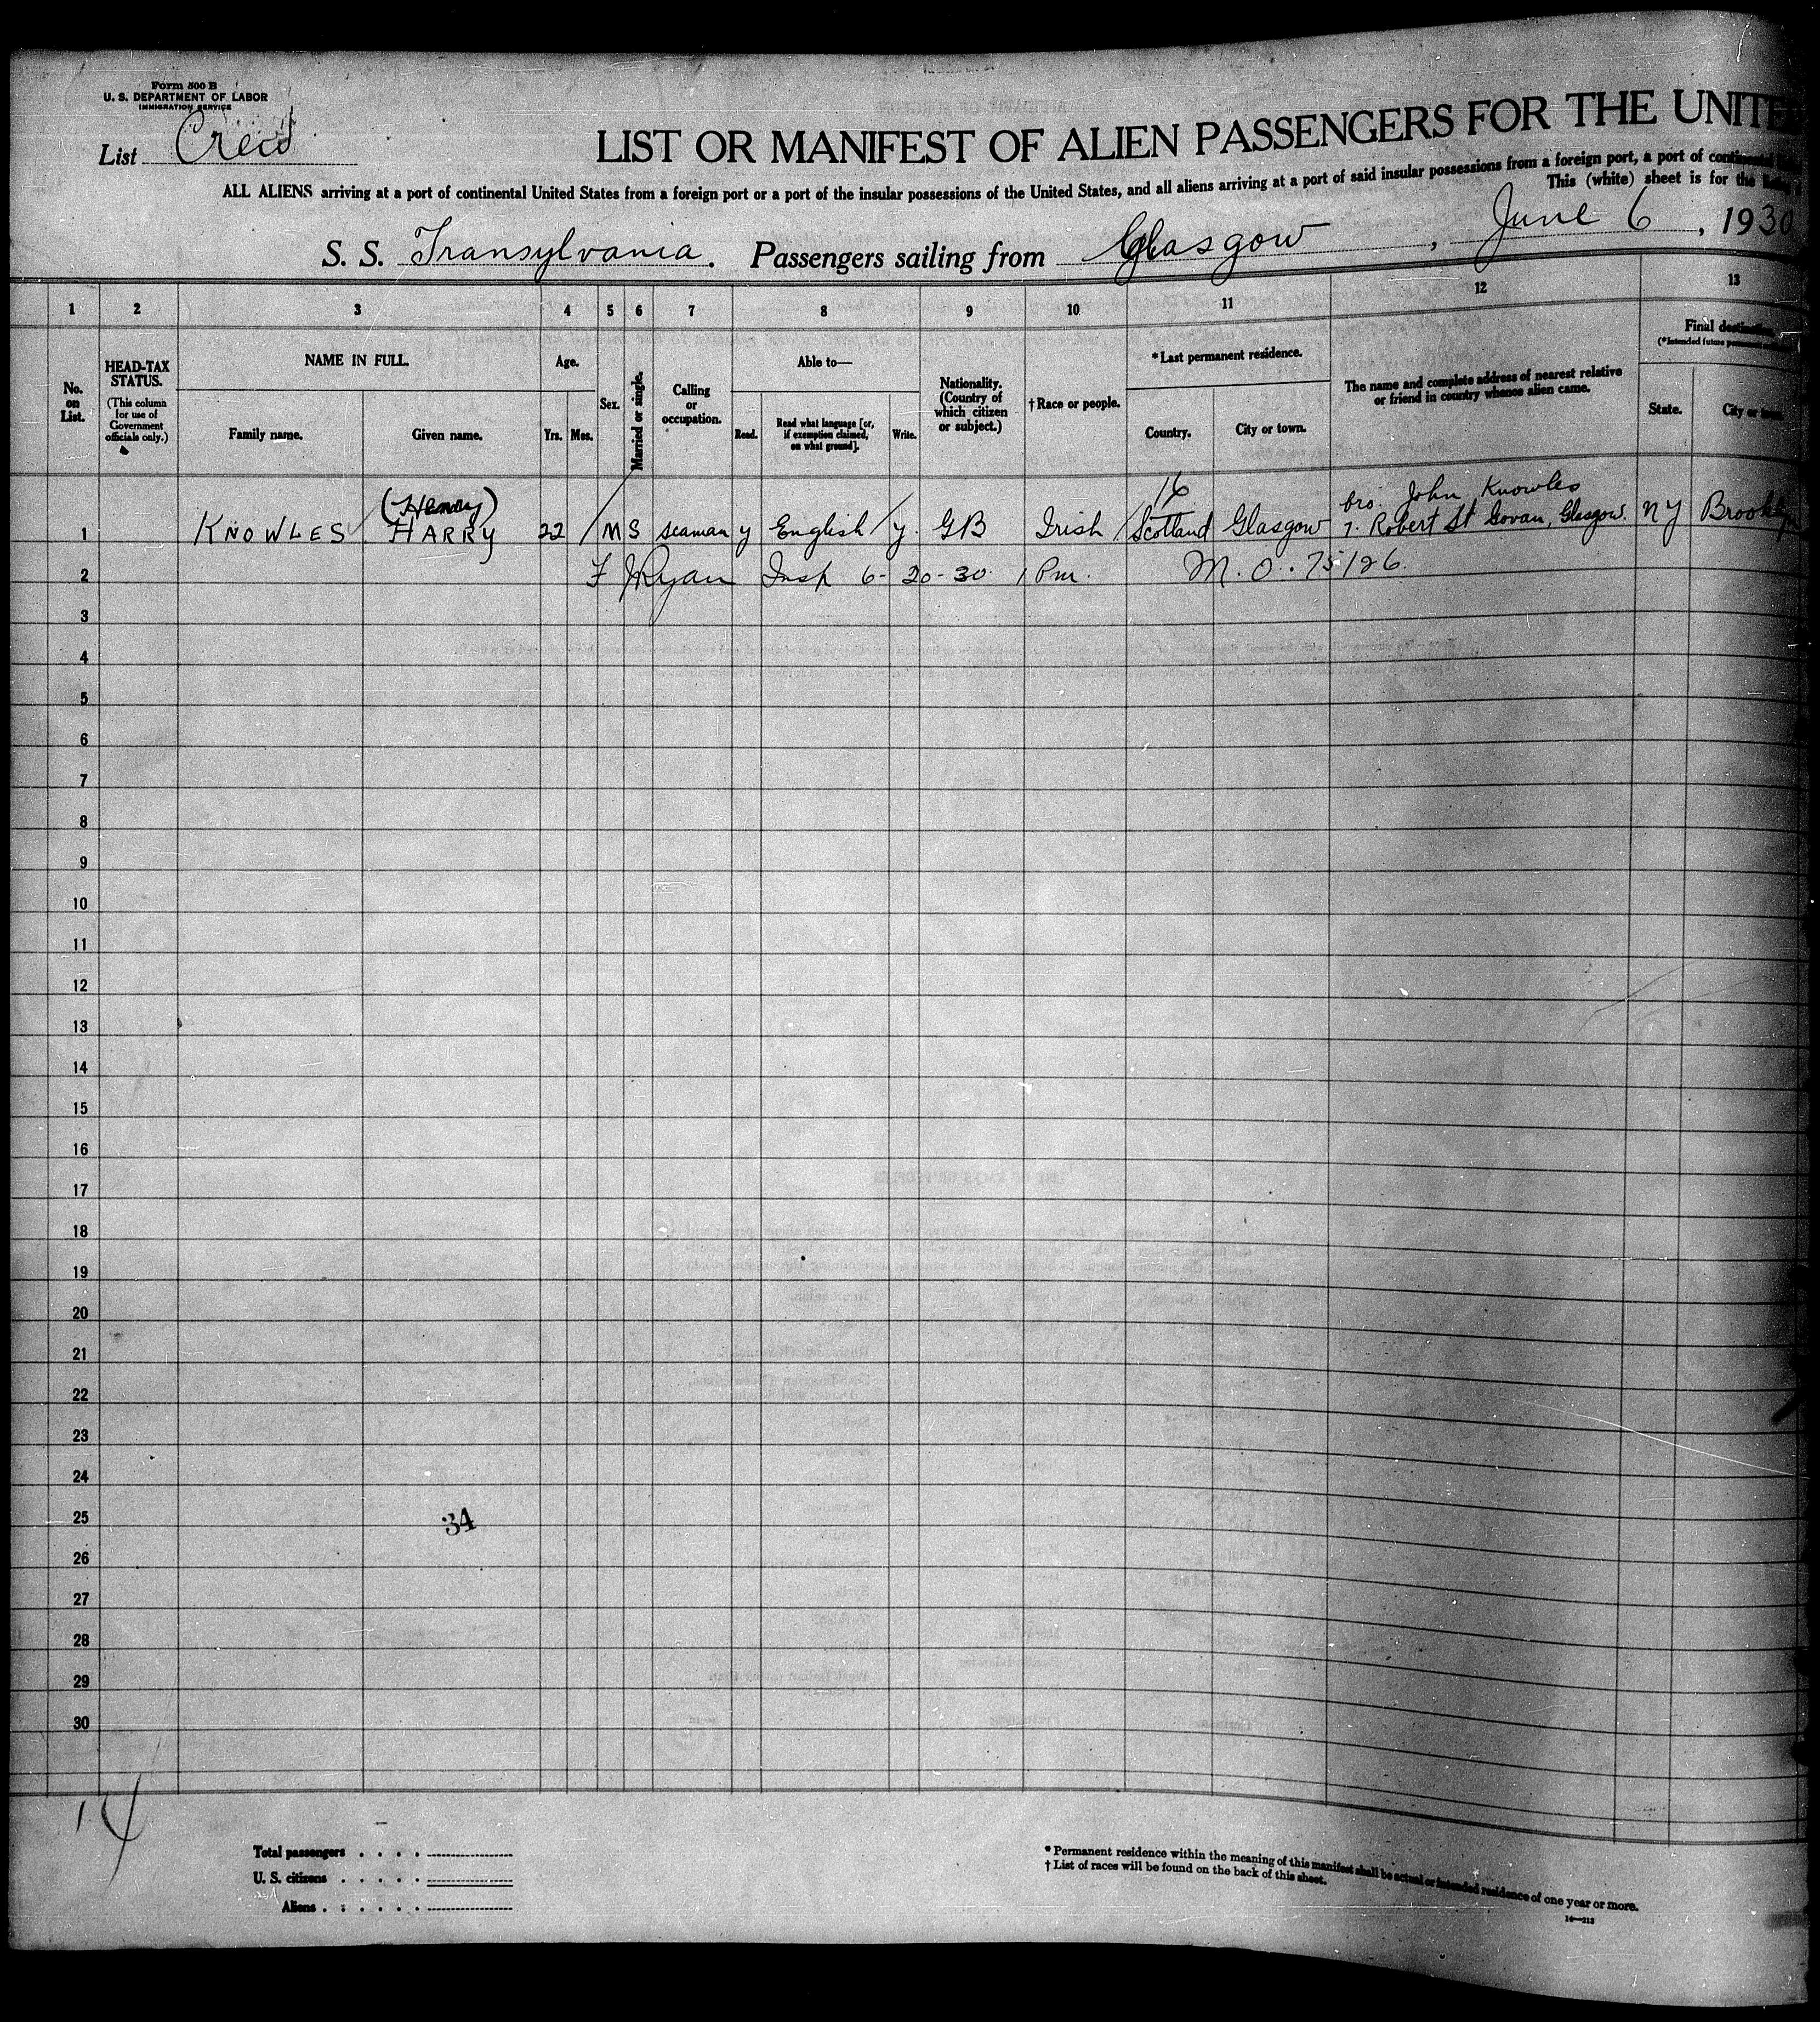 Form 500 B
U. S. DEPARTMENT OF LABOR
IMMIGRATION SERVICE
List Crew
LIST OR MANIFEST OF ALIEN PASSENGERS FOR THE UNITE
ALL ALIENS arriving at a port of continental United States from a foreign port or a port of the insular possessions of the United States, and all aliens arriving at a port of said insular possessions from a foreign port, a port of continental
This (white) sheet is for the
S. S. Transylvania. Passengers sailing from Glasgow, June 6, 1930
1 2 3 4 5 6 7 8 9 10 11 12 13
No. on List.
HEAD-TAX STATUS.
(This column for use of Government officials only.)
NAME IN FULL.
Family name.
Given name.
Age.
Yrs. Mos.
Sex.
Married or single.
Calling or occupation.
Able to—
Read.
Read what language [or, if exemption claimed, on what ground].
Write.
Nationality. (Country of which citizen or subject.)
† Race or people.
* Last permanent residence.
Country.
City or town.
The name and complete address of nearest relative or friend in country whence alien came.
Final destination.
(*Intended future permanent
State.
City or town.
(Henry) 16 bro John Knowles
1 KNOWLES HARRY 22 M S seaman y English y. GB Irish Scotland Glasgow 7. Robert St Govan, Glasgow. NY Brooklyn
2 F J Ryan Insp 6-20-30 1 Pm. M. O. 75/26.
3
4
5
6
7
8
9
10
11
12
13
14
15
16
17
18
19
20
21
22
23
24
25 34
26
27
28
29
30
Total passengers
U. S. citizens
Aliens
* Permanent residence within the meaning of this manifest shall be actual or intended residence of one year or more.
† List of races will be found on the back of this sheet.
16—213